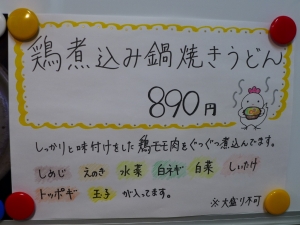 鶏煮込み鍋焼きうどん
890円
しっかりと味付けをした鶏モモ肉をぐつぐつ煮込んでます。
しめじ えのき 水菜 白ネギ 白菜 しいたけ
トッポギ 玉子 が入ってます。
※大盛り不可